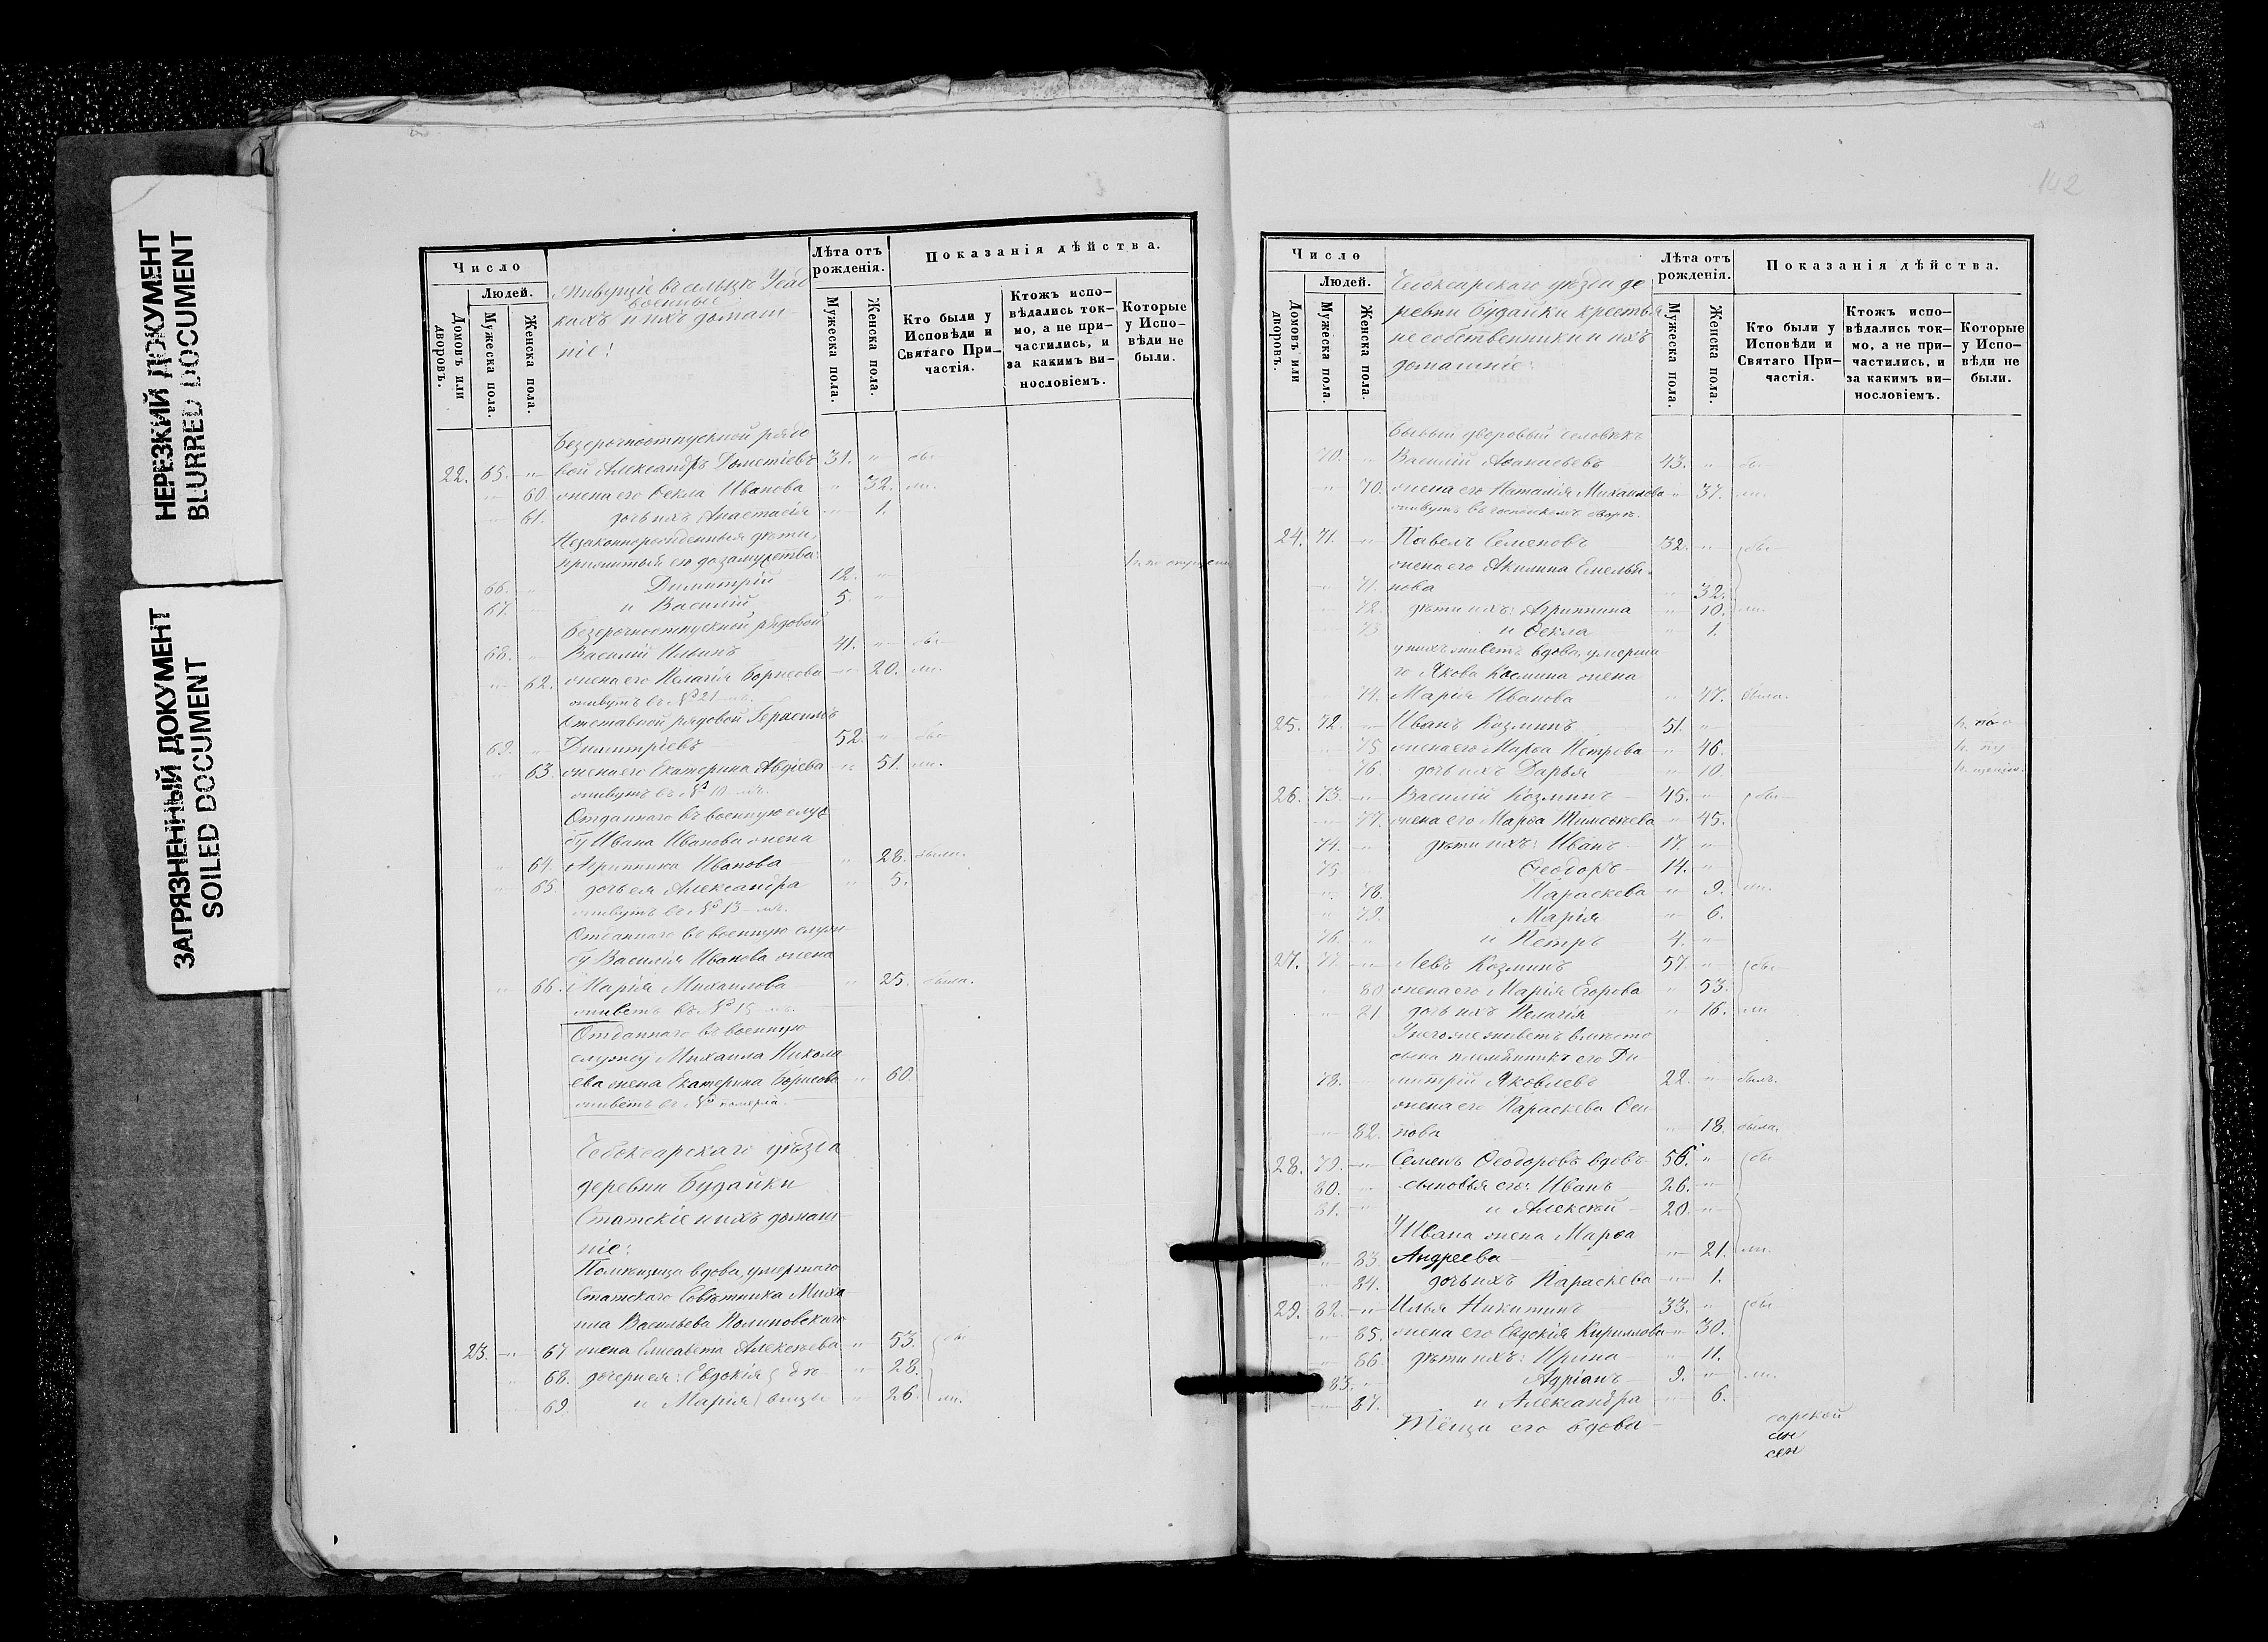 НЕРЕЗКИЙ ДОКУМЕНТ
BLURRED DOCUMENT
ЗАГРЯЗНЕННЫЙ ДОКУМЕНТ
SOILED DOCUMENT
Число
Людей.
Домовъ или дворовъ.
Мужеска пола.
Женска пола.
Живущіе въ сельцѣ
военные
и ихъ домаш-
ніе:
Лѣта отъ рожденія.
Мужеска пола.
Женска пола.
Показанія дѣйства.
Кто были у Исповѣди и Святаго При-частія.
Ктожъ испо-вѣдались ток-мо, а не при-частились, и за какимъ ви-нословіемъ.
Которые у Испо-вѣди не были.
Безсрочноотпускной рядо
22. 65. „ вой Александръ Дометіевъ 31. „ бы
„ 60. жена его Ѳекла Иванова „ 32. ли.
„ 61. дочь ихъ Анастасія „ 1.
Незаконнорожденныя дѣти,
прижитыя ею до замужства:
66. „ Димитрій 12. „
67. „ и Василій 5. „
Безсрочноотпускной рядовой
68. „ Василій Ильинъ 41. „ бы
„ 62. жена его Пелагія Борисова „ 20. ли.
живутъ въ № 21
Отставной рядовой Герасимъ
69. „ Димитріевъ 52. „ бы
„ 63. жена его Екатерина Авдіева „ 51. ли.
живутъ въ № 10
Отданнаго въ военную служ
бу Ивана Иванова жена
„ 64. Агриппина Иванова „ 28. были.
„ 65. дочь ея Александра „ 5.
живутъ въ № 13
Отданнаго въ военную служ
бу Василія Иванова жена
„ 66. Марія Михаилова „ 25. была.
живетъ въ № 15
Отданнаго въ военную
службу Михаила Никола
ева жена Екатерина Борисова „ 60.
живетъ въ № померла.
Чебоксарскаго уѣзда
деревни Будайки
Статскіе и ихъ домаш
ніе:
Помѣщица вдова, умершаго
Статскаго Совѣтника Миха
ила Васильева Полиновскаго
23. „ 67 жена Елисавета Алексѣева „ 53. бы
„ 68. дочери ея: Евдокія дѣ „ 28.
69. и Марія вицы „ 26. ли.
142
Число
Людей.
Домовъ или дворовъ.
Мужеска пола.
Женска пола.
Чебоксарскаго уѣзда де
ревни Будайки крестья
не собственники и ихъ
домашніе:
Лѣта отъ рожденія.
Мужеска пола.
Женска пола.
Показанія дѣйства.
Кто были у Исповѣди и Святаго При-частія.
Ктожъ испо-вѣдались ток-мо, а не при-частились, и за какимъ ви-нословіемъ.
Которые у Испо-вѣди не были.
Бывый дворовый человѣкъ
70. „ Василій Аѳанасьевъ 43. „ бы
„ 70. жена его Наталія Михаилова „ 37. ли.
живутъ въ господскомъ дворѣ.
24. 71. „ Павелъ Семеновъ 32. „ бы
жена его Акилина Емелья-
„ 71. нова „ 32.
72. дѣти ихъ: Агриппина „ 10. ли.
73 и Ѳекла „ 1.
у нихъ живетъ вдова, умерша
го Якова Козмина жена
74. Марія Иванова „ 47. была.
25. 72. „ Иванъ Козминъ 51. „
„ 75 жена его Марѳа Петрова „ 46.
76. дочь ихъ Дарья „ 10.
26. 73. „ Василій Козминъ 45. „ бы
„ 77. жена его Марѳа Тимоѳеева „ 45.
74. „ дѣти ихъ: Иванъ 17. „
75 Ѳеодоръ 14. „
„ 78. Параскева „ 9. ли.
„ 79. Марія „ 6.
76. „ и Петръ 4. „
27. 77. „ Левъ Козминъ 57. „ бы
80 жена его Марія Егорова „ 53.
„ 81 дочь ихъ Пелагія „ 16. ли
У него же живетъ вмѣсто
сына племянникъ его Ди
78. митрій Яковлевъ 22. „ былъ.
жена его Параскева Оси
„ 82. пова „ 18. была.
28. 79. „ Семенъ Ѳеодоровъ вдовъ 56. „ бы
80. „ сыновья его: Иванъ 26. „
81. „ и Алексѣй 20. „
У Ивана жена Марѳа
„ 83. Андреева „ 21. ли.
„ 84. дочь ихъ Параскева „ 1.
29. 82. „ Илья Никитинъ 33. „ бы
„ 85. жена его Евдокія Кириллова „ 30.
„ 86. дѣти ихъ: Ирина „ 11.
83. Адріанъ 9. „ ли.
„ 87. и Александра „ 6.
Тёща его вдова